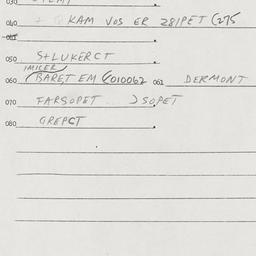 030
040 KAM VOS ER 281PET (275
050 S+LUKERCT
IMICER
060 BARET EM (010062 061 DERMONT
070 FARSOPET .. SOPET
080 OREPCT